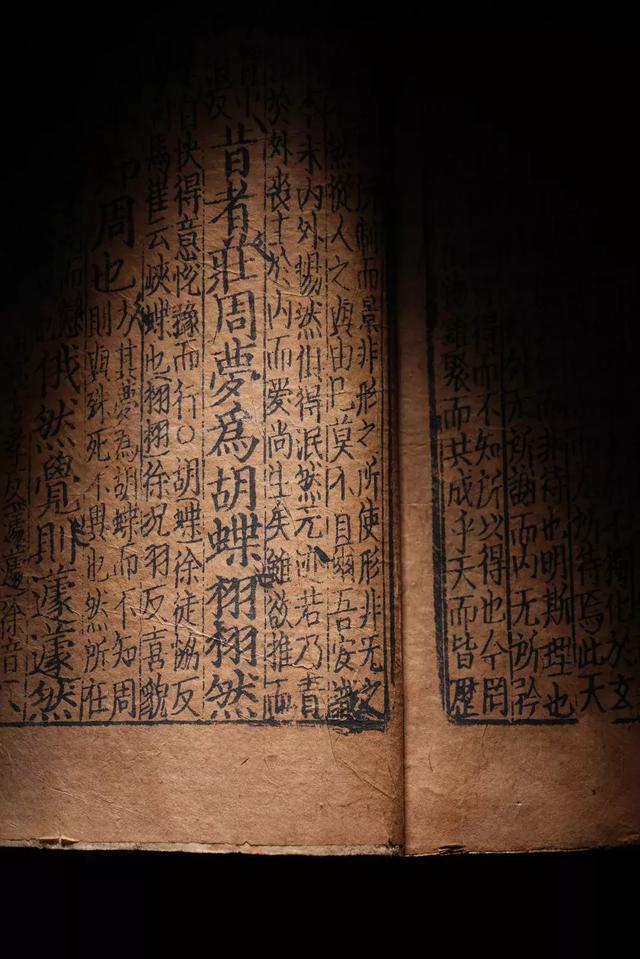 獨化於玄
所待焉此天
而非待也明斯理也
外无所謝而内无所矜
得而不知所以得也今罔
聚而共成乎天而皆歷
所制而景非形之所使形非无之
然從人之與由己莫不自爾吾安識
本末内外暢然俱得泯然无迹若乃責
於外喪主於内而愛尚生矣雖欲推而
昔者莊周夢為胡蝶栩栩然
自快得意恱豫而行○胡蝶徐徒協反
司馬崔云蛺蝶也栩栩徐況羽反喜貌
周也
方其夢為胡蝶而不知周
則與殊死不異也然所在
俄然覺則蘧蘧然
蘧蘧徐音